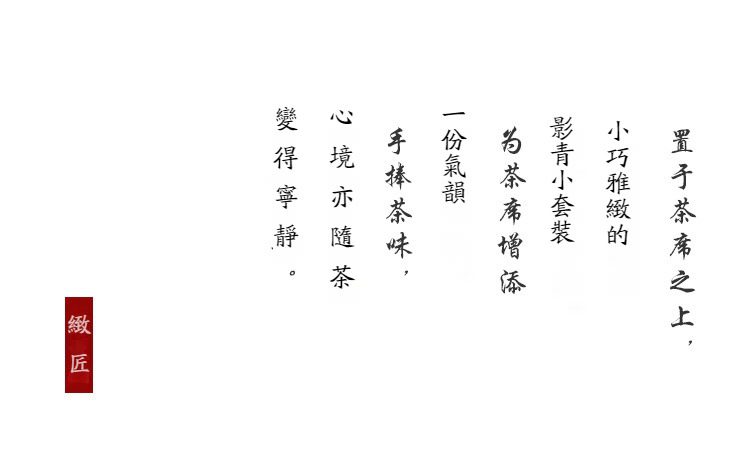 置于茶席之上，
小巧雅緻的
影青小套裝
为茶席增添
一份氣韻
手捧茶味，
心境亦隨茶
變得寧靜。
緻匠